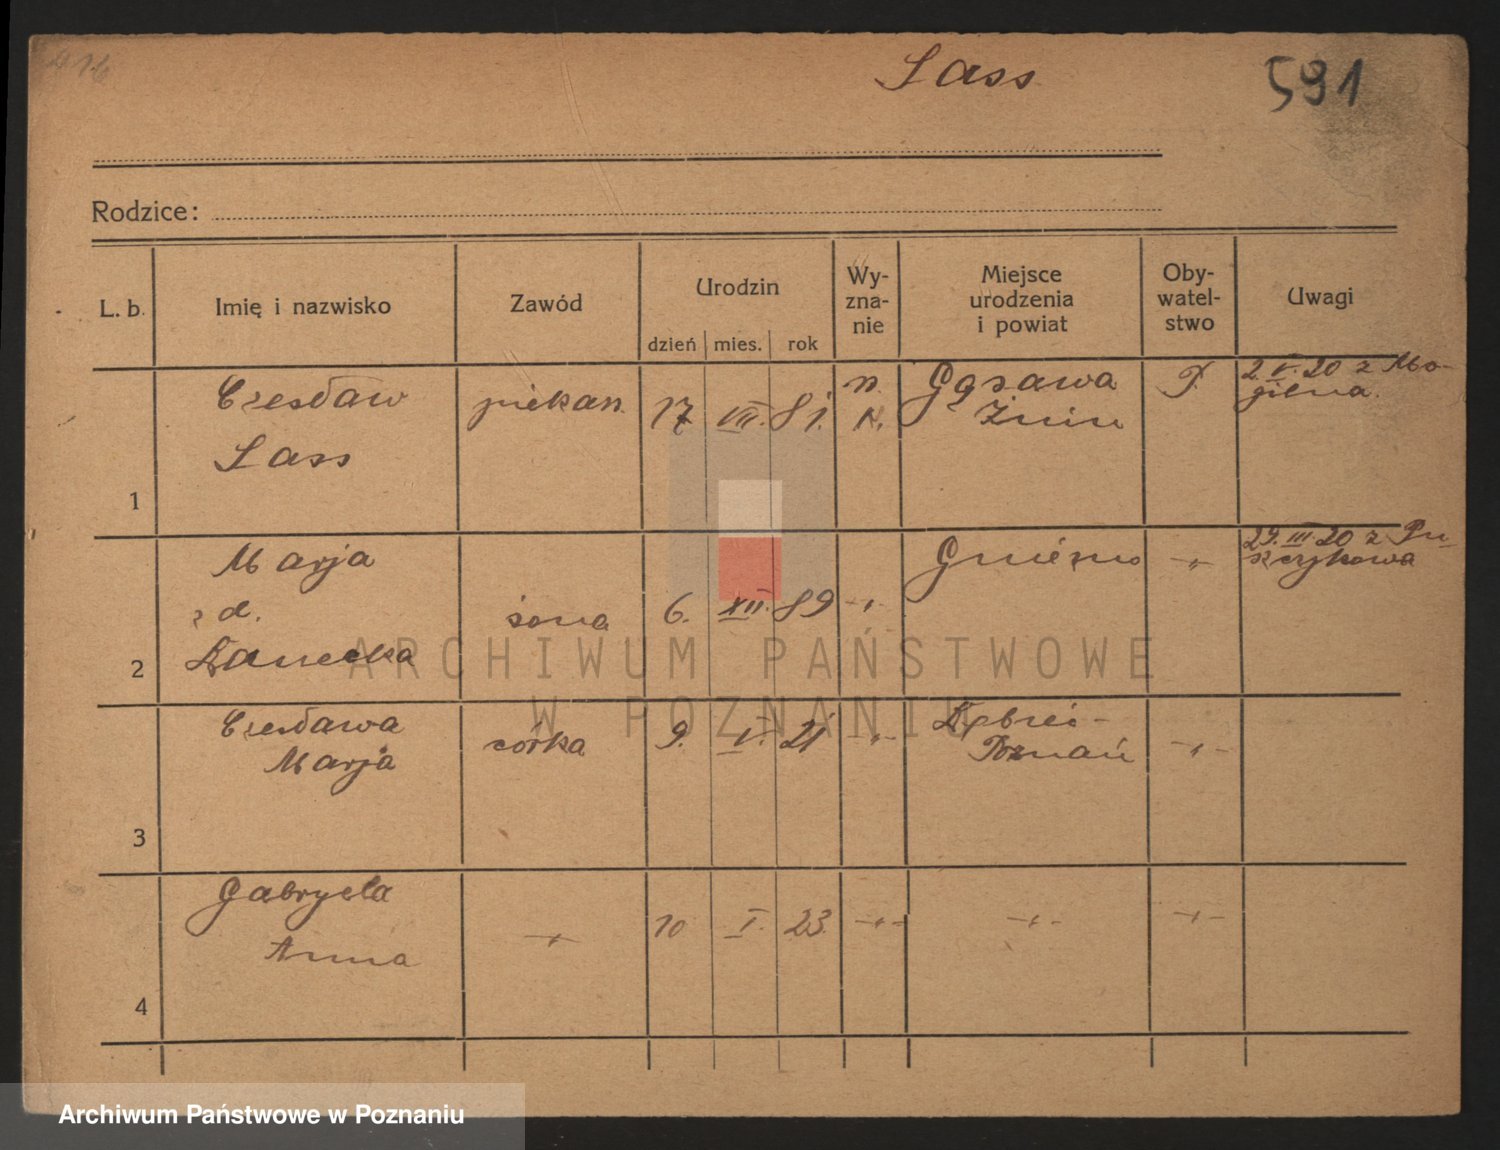 416
Sass
591
Rodzice:
L. b.
Imię i nazwisko
Zawód
Urodzin
dzień
mies.
rok
Wy-
zna-
nie
Miejsce
urodzenia
i powiat
Oby-
watel-
stwo
Uwagi
1
Czesław
Sass
piekarz
17
VII.
81.
Gąsawa
Żnin
P.
2. V. 20 z Mo-
gilna.
2
Marja
z d.
żona
6.
XII.
89
Gniezno
-„-
29. III. 20 z Pu-
szczykowa
3
Czesława
Marja
córka
9.
V.
21
-„-
Dębiec -
Poznań
-„-
4
Gabryela
Anna
-„-
10
I.
23
-„-
-„-
-„-
ARCHIWUM PAŃSTWOWE
W POZNANIU
Archiwum Państwowe w Poznaniu